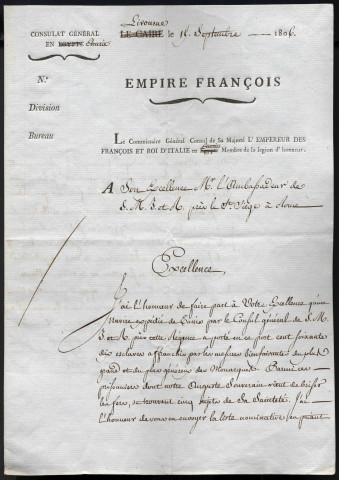 CONSULAT GÉNÉRAL
EN EGYPTE Etrurie
Livourne
LE CAIRE le 16 Septembre 1806.
N.º
Division
Bureau
EMPIRE FRANÇOIS
Le Commissaire Général Consul de Sa Majesté L'EMPEREUR DES
FRANÇOIS ET ROI D'ITALIE en Egypte Etrurie Membre de la legion d'honneur.
A Son Excellence Mr. l'Ambassadeur de
S. M. I. et R. près le St. Siége à Rome
Excellence,
J'ai l'honneur de faire part à Votre Excellence qu'un
navire expédié de Tunis par le Consul général de S. M.
I. et R. près cette Régence a porté en ce port cent soixante
dix esclaves affranchis par les mesures bienfaisantes du plus
grand et du plus généreux des Monarques. Parmi ces
prisonniers dont notre Auguste Souverain vient de briser
les fers, se trouvent cinq sujets de Sa Sainteté. J'ai
l'honneur de vous en envoyer la liste nominative en priant